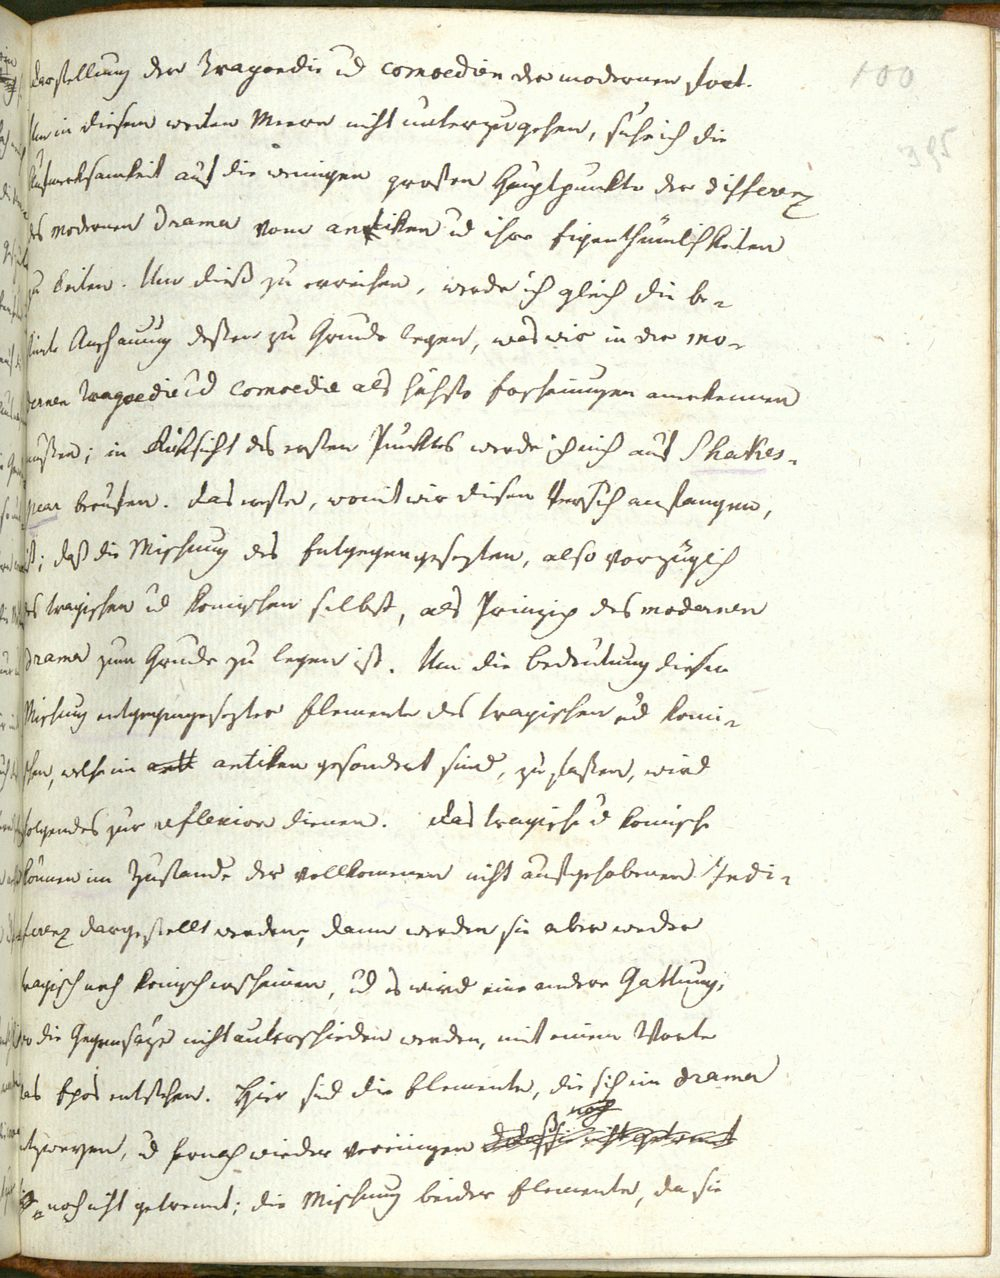 100
395
darstellung der Tragoedie ud comoedien der modernen fort.
Um in diesem weiten Meere nicht unterzugehen, suche ich die
Aufmerksamkeit auf die wenigen großen Hauptpunkte der differenz
des modernen Drama vom antiken ud ihre Eigenthümlichkeiten
zu leiten. Um dieß zu erreichen, werde ich gleich die be-
stimte Anschauung dessen zu Grunde legen, was wir in der mo-
dernen Tragoedie ud Comoedie als höchste Erscheinungen anerkennen
müßen; in Rüksicht des ersten Punktes werde ich mich auf Shakes-
pear berufen. das erste, womit wir diesen Versuch anfangen,
ist; daß die Mischung des Entgegengesezten, also vorzüglich
des tragischen ud komischen selbst, als Prinzip des modernen
Drama zum Grunde zu legen ist. Um die Bedeutung dieser
Mischung entgegengesezter Elemente des tragischen ud komi-
schen, welche im antt antiken gesondert sind, zu fassen, wird
folgendes zur reflexion dienen. das tragische ud komische
können im Zustande der vollkomenen nicht aufgehobenen Indi-
ferenz dargestellt werden, dann werden sie aber weder
tragisch noch komisch erscheinen, ud es wird eine andere Gattung,
wo die Gegensäze nicht unterschieden werden, mit einem Worte
das Epos entstehen. Hier sind die Elemente, die sich im drama
entzweyen, ud hernach wieder vereinigen
noch
noch nicht getrennt; die Mischung beider Elemente, da sie